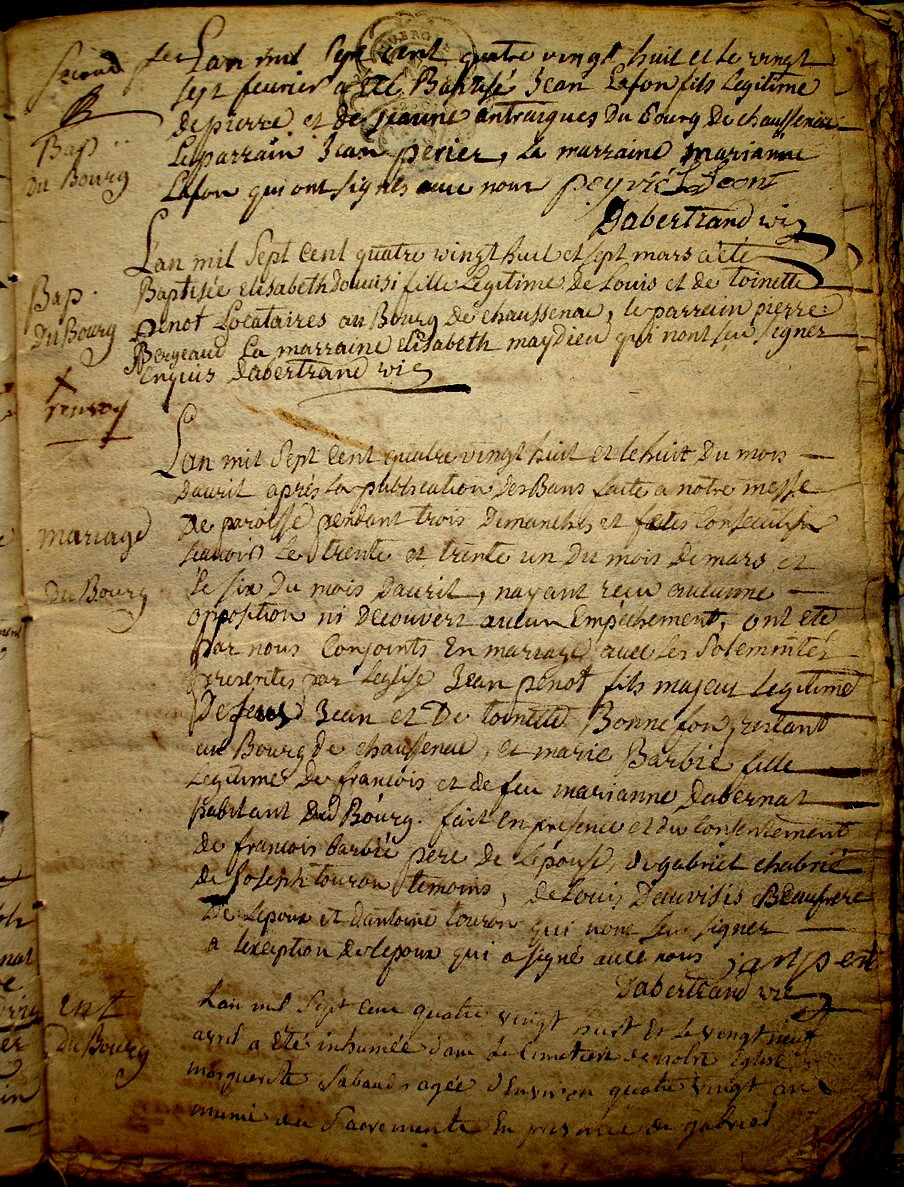 second
Lan mil Sept Cent quatre vingt huit et le vingt
sept fevrier a été Baptisé Jean Lafon fils Legitime
de pierre et de jeanne antraigues du bourg de chaussenac
Bap
Le parrain Jean perier, La marraine marianne
du Bourg
Lafon qui ont signés avec nous
Dabertrand vic
Lan mil Sept Cent quatre vingt huit et sept mars a été
Bap.
Baptisée elisabeth fille Legitime de Louis et de toinette
du Bourg
penot Locataires au Bourg de chaussenac, le parrein pierre
Bergeaud La marraine elisabeth maydieu qui nont seu signer
enquis Dabertrand vic
Lan mil Sept Cent quatre vingt huit et le huit du mois
davril après la publication des Bans faite a notre messe
de paroisse pendant trois dimanches et fetes consecutifs
mariage
scavoir Le trente et trente un du mois de mars et
du Bourg
Le six du mois davril, nayant recu aucunne
opposition ni decouvert aucun Empechement, ont eté
par nous Conjoints En mariage avec les Solemnités
presentes par Leglise Jean penot fils majeur Legitime
de feu Jean et De toinette Bonnefon, restant
au Bourg de chaussenac, et marie Barbié fille
Legitime de francois et de feu marianne Dabernat
habitant dud Bourg. fait en presence et du Consentement
de francois barbié pere de Lepouse, de gabriel chabrié
de Joseph touron temoins, de Louis Beaufrere
De Lepoux et dantoine touron qui nont seu signer
a lexception de lepoux qui a signé avec nous
Dabertrand vic
ent
Lan mil Sept Cent quatre vingt huit Et le vingt neuf
du Bourg
avril a été inhumée dans le Cimetiere de notre Eglise
marguerite Sabaud agée d'Environ quatre vingt ans
munie des Sacremente En presence de gabriel